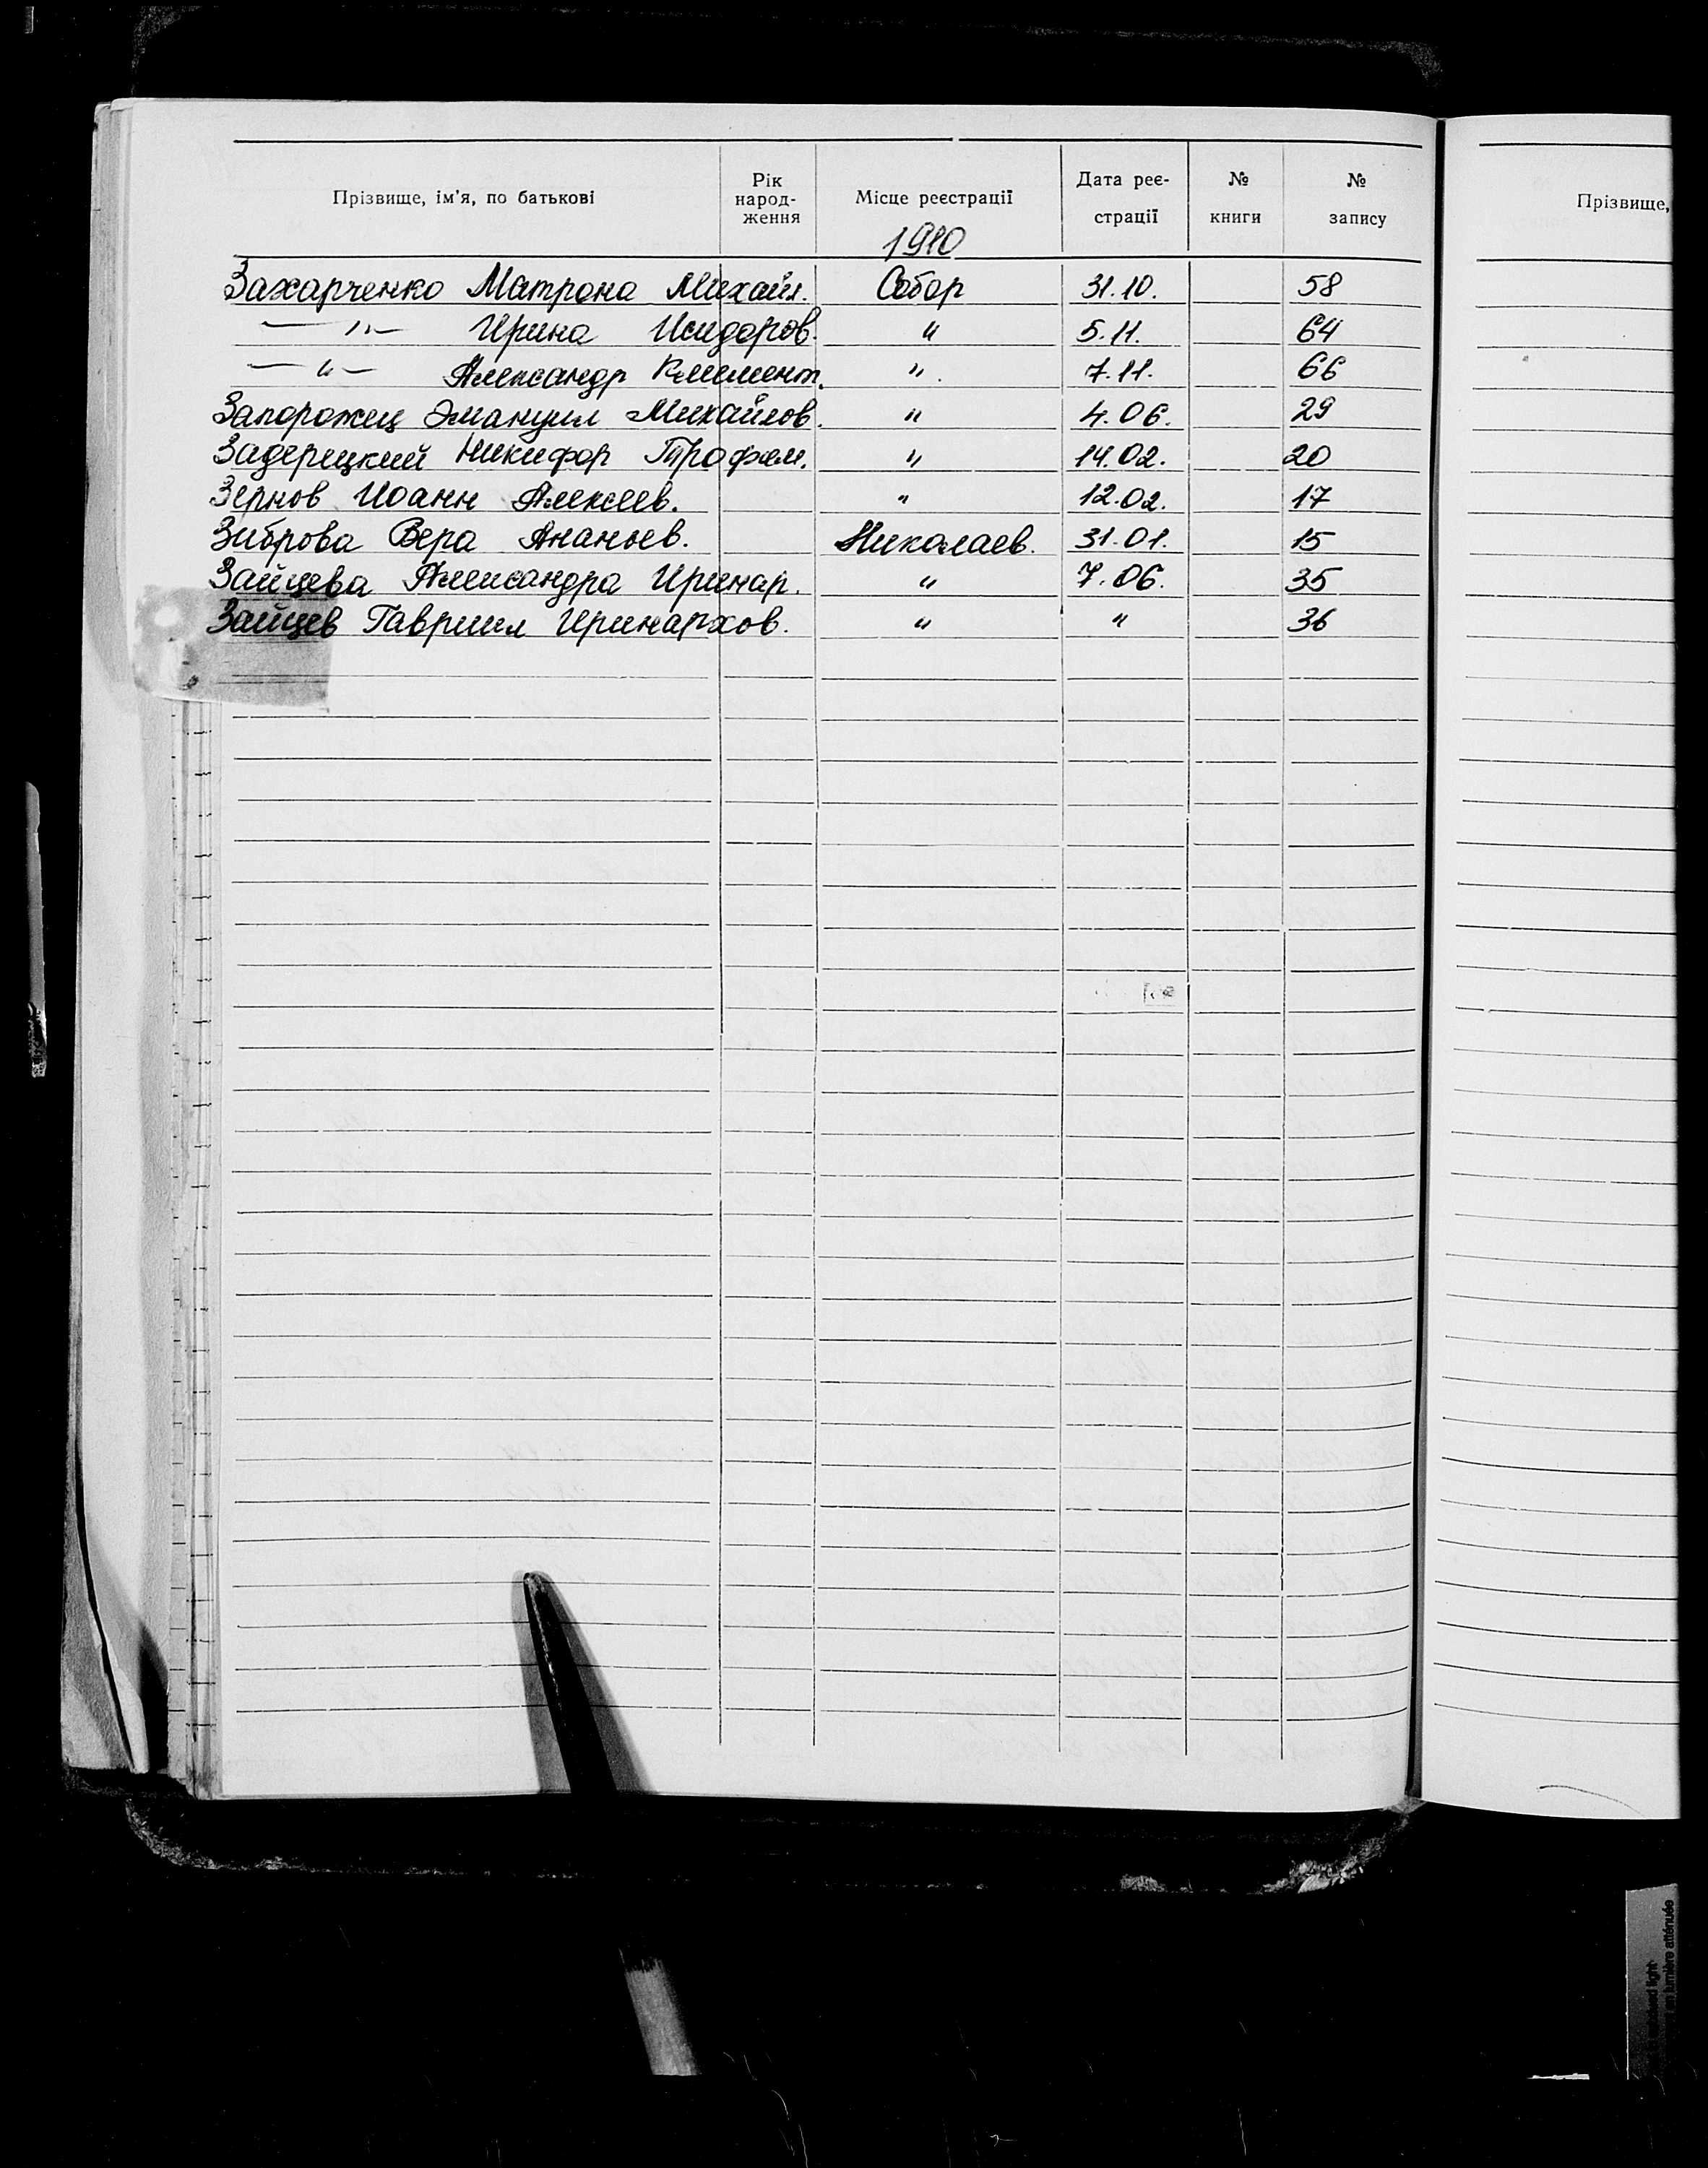 Прізвище, ім'я, по батькові Рік народ-ження Місце реєстрації Дата реє-страції № книги № запису
1910
Захарченко Матрона Михайл. Собор 31.10. 58
—"— Ирина Исидоров. " 5.11. 64
—"— Александр Климент. ". 7.11. 66
Запорожец Эмануил Михайлов. " 4.06. 29
Задерецкий Никифор Трофим. " 14.02. 20
Зернов Иоанн Алексеев. " 12.02. 17
Зиброва Вера Ананьев. Николаев. 31.01. 15
Зайцева Александра Иринар. " 7.06. 35
Зайцев Гавриил Иринархов. " " 36
Прізвище,